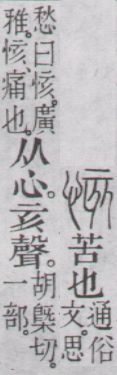 㤥苦也
通俗
文。思
愁曰㤥。廣
雅。㤥、痛也。
从心。亥聲。
胡槩切。
一部。